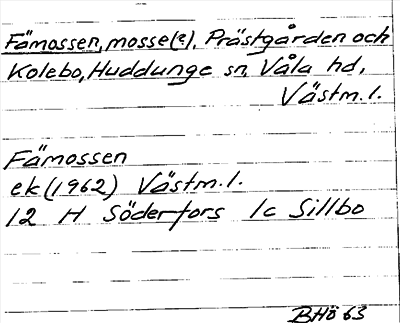 Fämossen, mosse(?), Prästgården och
Kolebo, Huddunge sn, Våla hd,
Västm.l.
Fämossen
ek (1962) Västm.l.
12 H Söderfors 1c Sillbo
BHÖ 63